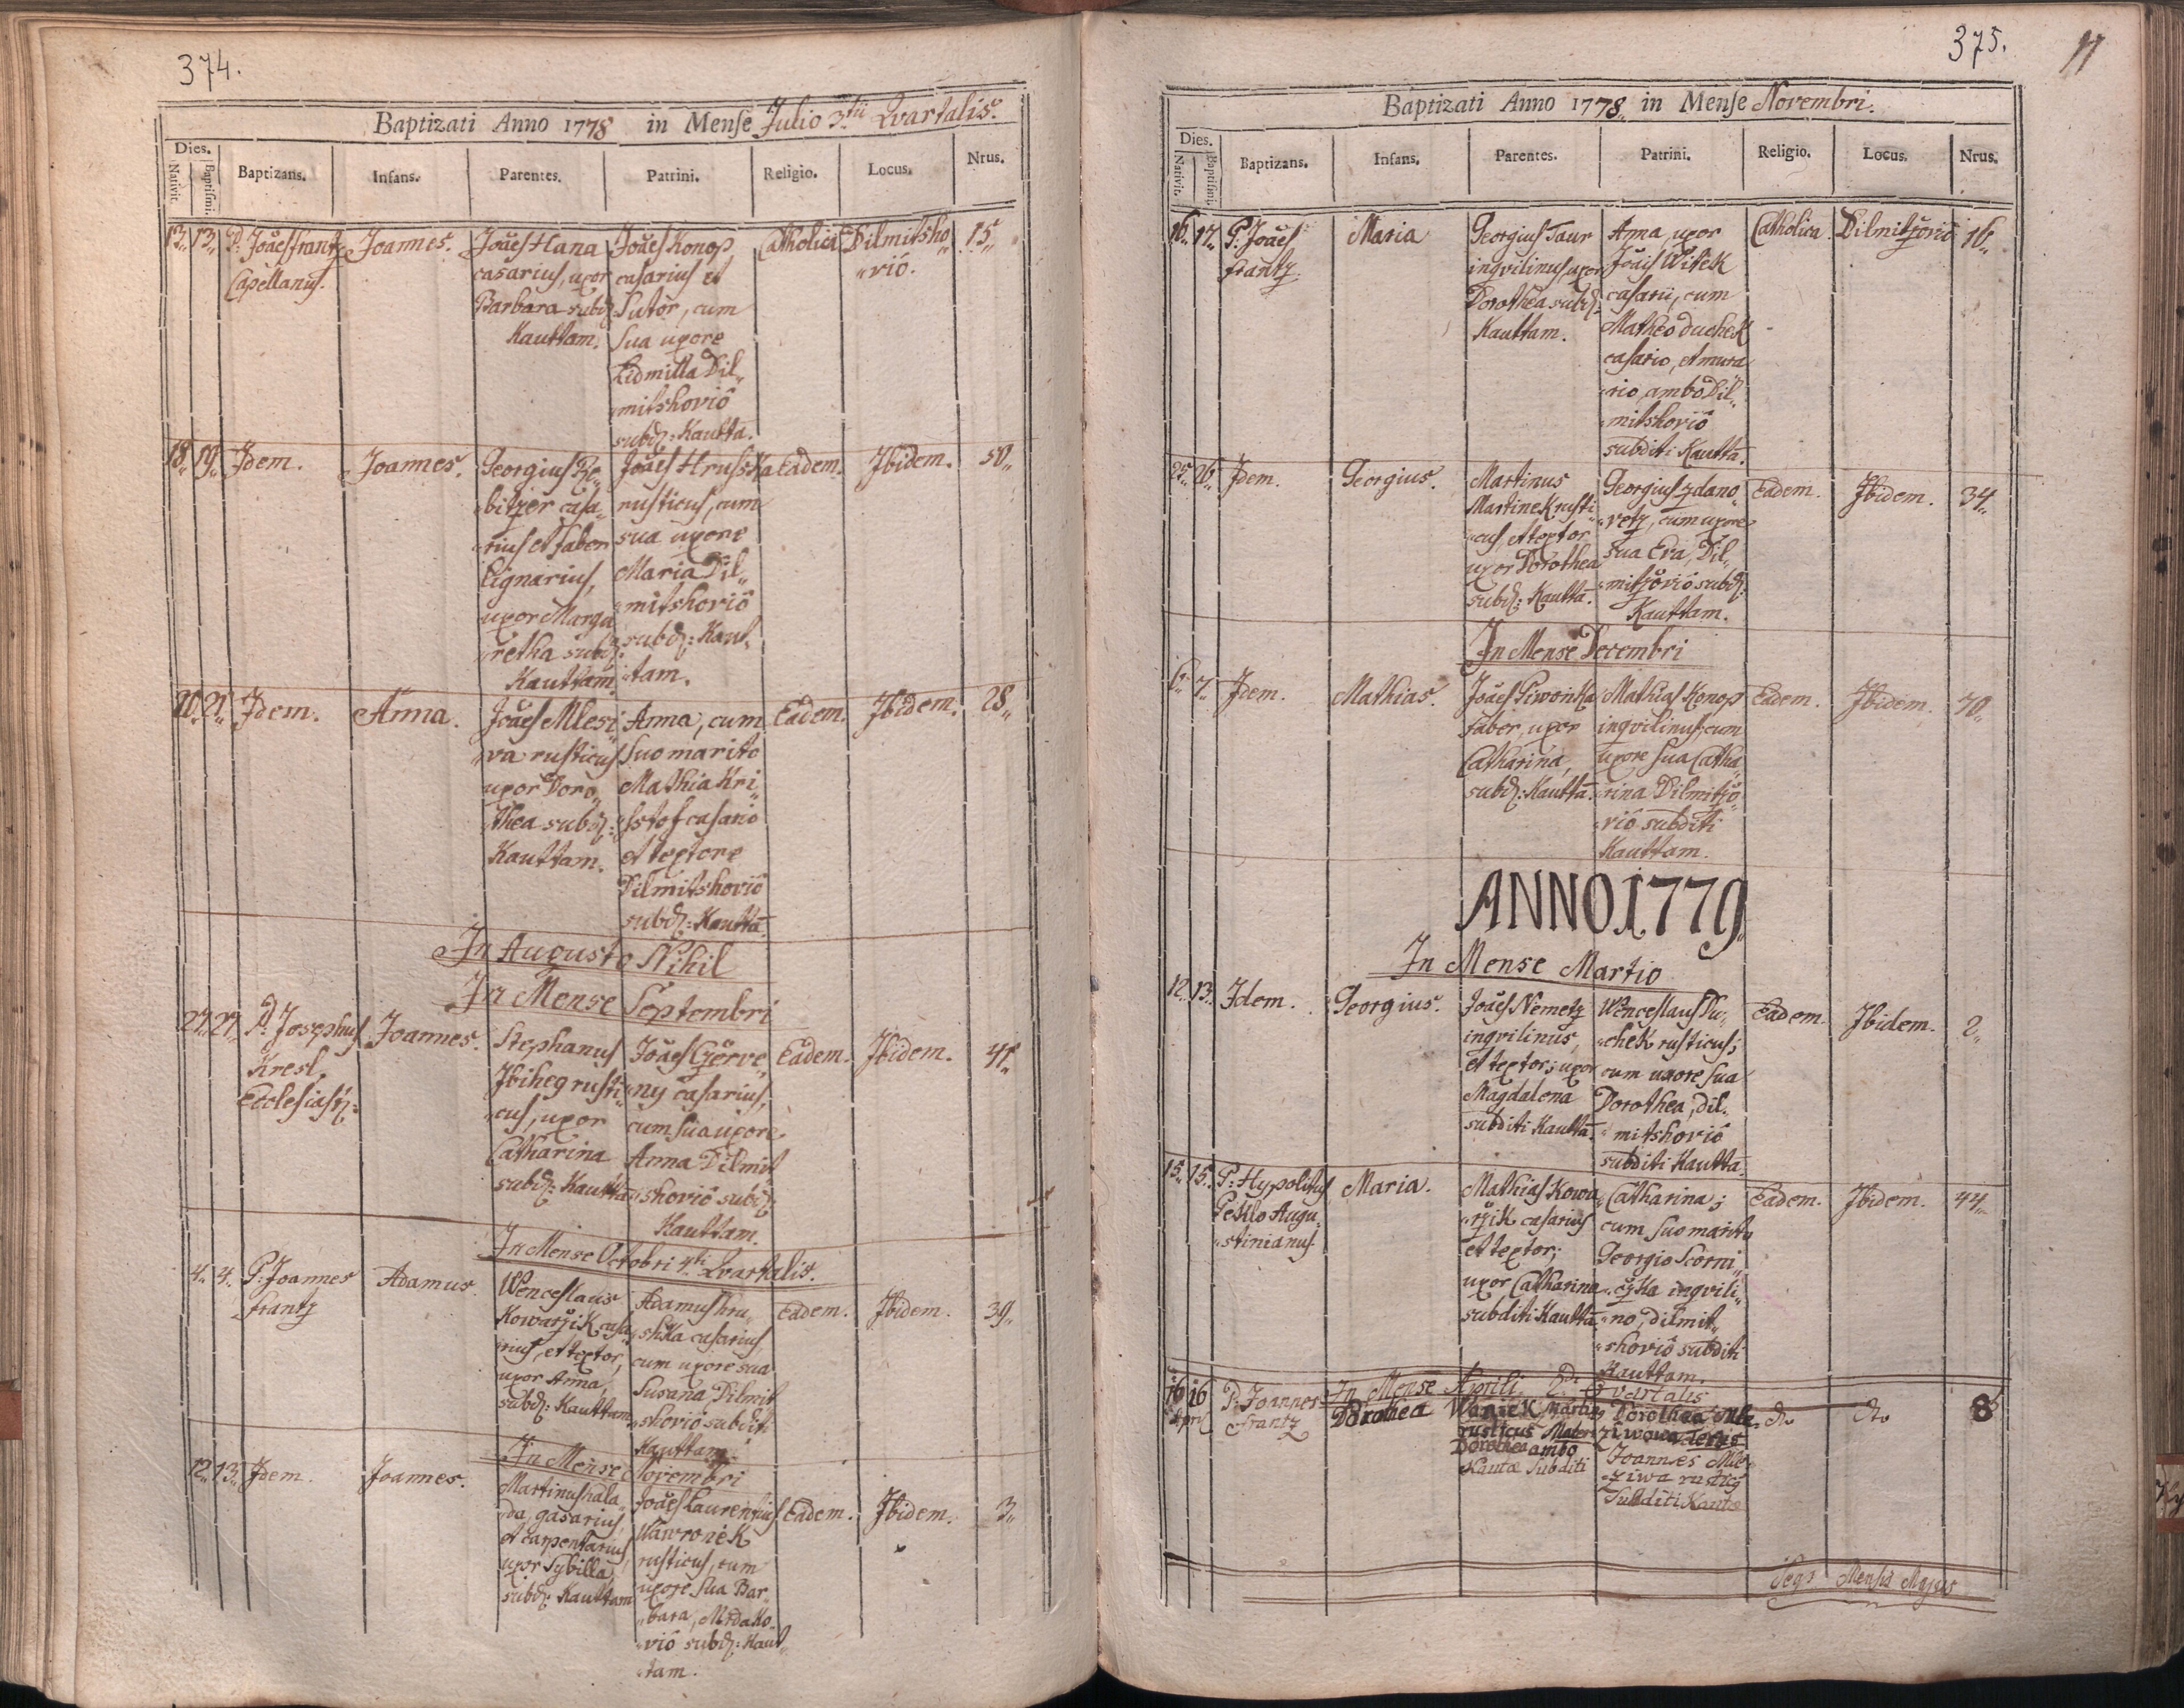 374.
Baptizati Anno 1778 in Mense Julio 3tii Qvartalis.
Dies.
Nativit.
Baptismi.
Baptizans.
Infans.
Parentes.
Patrini.
Religio.
Locus.
Nrus.
13.. 13..
P. Joães frantz
Capellanus.
Joannes.
Joães Hana
casarius, uxor
Barbara subd:
Kauttam.
Joães Konop
casarius et
Sutor, cum
sua uxore
Lidmilla Dil„
„mitshoviô
subd: Kautta.
Catholica
Dilmitsho„
„viô.
15„
18„ 19„
Idem.
Joannes.
Georgius Re„
„bitzer casa„
„rius et faber
lignarius,
uxor Marga„
„retha subd:
Kauttam.
Joães Hrusska
rusticus, cum
sua uxore
Maria Dil„
„mitshoviô
subd: Kaut„
„tam.
Eadem.
Ibidem.
50„
20„ 21„
Idem.
Anna.
Joães Mlesi„
„va rusticus
uxor Doro„
„thea subd:
Kauttam.
Anna, cum
suo marito
Mathia Kri„
„stof casario
et textore
Dilmitshoviô
subd: Kauttā.
Eadem.
Ibidem.
28„
In Augusto Nihil
In Mense Septembri
27„ 27„
P. Josephus
Kresl,
Ecclesiast:
Joannes.
Stephanus
Jbiheg rusti„
„cus, uxor
Catharina
subd: Kauttā
Joães Czerve„
„ny casarius,
cum sua uxore
Anna Dilmit„
„shoviô subd:
Kauttam.
Eadem.
Ibidem.
41„
In Mense Octobri 4ti Qvartalis.
4„ 4„
P: Joannes
frantz
Adamus.
Wenceslaus
Kowarzik casa„
„rius, et textor,
uxor Anna,
subd: Kauttam
Adamus hru„
„shka casarius,
cum uxore sua
Susana Dilmit„
„shoviô subditi
Kauttam.
Eadem.
Ibidem.
39„
In Mense Novembri
12„ 13„
Idem.
Joannes.
Martinus hala„
„da, gasarius,
et carpentarius
uxor Sybilla,
subd: Kauttam
Joães Laurentius
Wawronek
rusticus, cum
uxore sua Bar„
„bara, Mrdako„
„viô subd: Kaut„
„tam.
Eadem.
Ibidem.
3„
375.
11
Baptizati Anno 1778„ in Mense Novembri.
Dies.
Nativit.
Baptismi.
Baptizans.
Infans.
Parentes.
Patrini.
Religio.
Locus.
Nrus.
16„ 17„
P: Joães
frantz
Maria
Georgius Taur
inqvilinus, uxor
Dorothea subd:
Kauttam.
Anna, uxor
Joãis Witek
casarii, cum
Matheo duchek
casario, et mura„
„rio, ambo Dil„
„mitshoviô
subditi Kauttā.
Catholica
Dilmitzoviô
16„
25„ 26„
Idem.
Georgius.
Martinus
Martinek rusti„
„cus, et textor
uxor Dorothea
subd: Kauttā.
Georgius zdano„
„vetz, cum uxore
sua Eva, Dil„
„mitzoviô subd:
Kauttam.
Eadem.
Ibidem.
34„
In Mense Decembri
6„ 7„
Idem.
Mathias.
Joães Piwonka
faber, uxor
Catharina,
subd: Kauttā.
Mathias Konop
inqvilinus, cum
uxore sua Catha„
„rina Dilmitzo„
„viô subditi
Kauttam.
Eadem.
Ibidem.
70„
ANNO 1779.
In Mense Martio
12„ 13„
Idem.
Georgius.
Joães Nemetz
inqvilinus,
et textor; uxor
Magdalena
subditi Kauttā.
Wenceslaus Du„
„chek rusticus;
cum uxore sua
Dorothea, dil„
„mitshoviô
subditi Kauttā.
Eadem.
Ibidem.
2„
15„ 15„
P: Hypolitus
Peklo Augu„
„stinianus.
Maria.
Mathias Kowa„
„rzik casarius
et textor;
uxor Catharina
subditi Kauttā
Catharina;
cum suo marito
Georgio Scorni„
„czka inqvili„
„no, dilmit„
„shoviô subditi
Kauttam.
Eadem.
Ibidem.
44„
In Mense Aprili 2di Qvartalis
16 16
April
P. Joannes
Frantz
Dorothea
Wanek Martin
rusticus Mater
Dorothea ambo
Kautæ Subditi
Dorothea Mle„
ziwowa Testis
Joannes Mle„
„ziwa rusticq
Subditi Kautæ
do
do
8
Seqr Mensis Majus